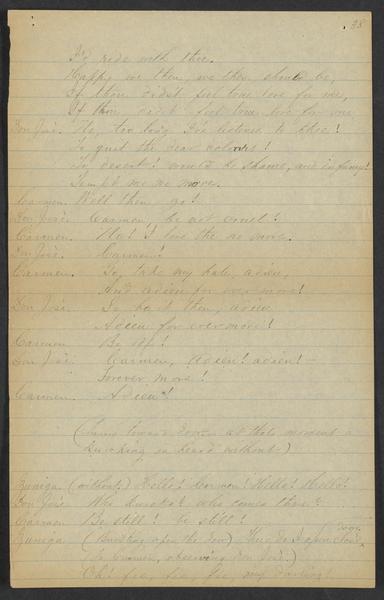 38
I'd ride with thee.
Happy we then, we then should be,
If thou didst feel true love for me,
If thou didst feel true love for me
Don José. No, too long I've listened to thee!
To quit the dear colors!
To desert! would be shame, and infamy!
Tempt me no more.
Carmen. Well then go!
Don José. Carmen, be not cruel!
Carmen. No! I love thee no more.
Don José. Carmen!
Carmen. Go, take my hate, adieu,
And adieu for ever more!
Don José. So be it then, adieu
Adieu for evermore!
Carmen Be off!
Don José. Carmen, adieu! adieu! —
Forever more!
Carmen. Adieu!
( toward door, at that moment a
knocking is heard without.)
Zuniga (without.) Hello! Carmen! Hello! Hello!
Don José Who knocks? who comes there?
Carmen Be still! be still!
Zuniga (Bursting open the door)
to Carmen, observing Don José.)
Oh! fie, fie, fie, my darling!